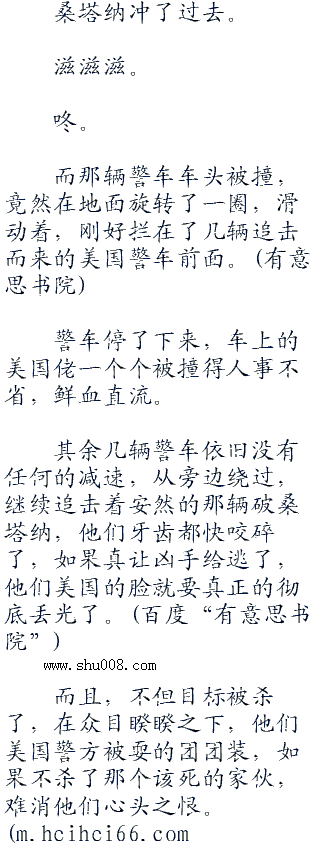 桑塔纳冲了过去。
滋滋滋。
咚。
而那辆警车车头被撞，
竟然在地面旋转了一圈，滑
动着，刚好拦在了几辆追击
而来的美国警车前面。(有意
思书院)
警车停了下来，车上的
美国佬一个个被撞得人事不
省，鲜血直流。
其余几辆警车依旧没有
任何的减速，从旁边绕过，
继续追击着安然的那辆破桑
塔纳，他们牙齿都快咬碎
了，如果真让凶手给逃了，
他们美国的脸就要真正的彻
底丢光了。(百度“有意思书
院”)
www.shu008.com
而且，不但目标被杀
了，在众目睽睽之下，他们
美国警方被耍的团团装，如
果不杀了那个该死的家伙，
难消他们心头之恨。
(m.hcihci66.com